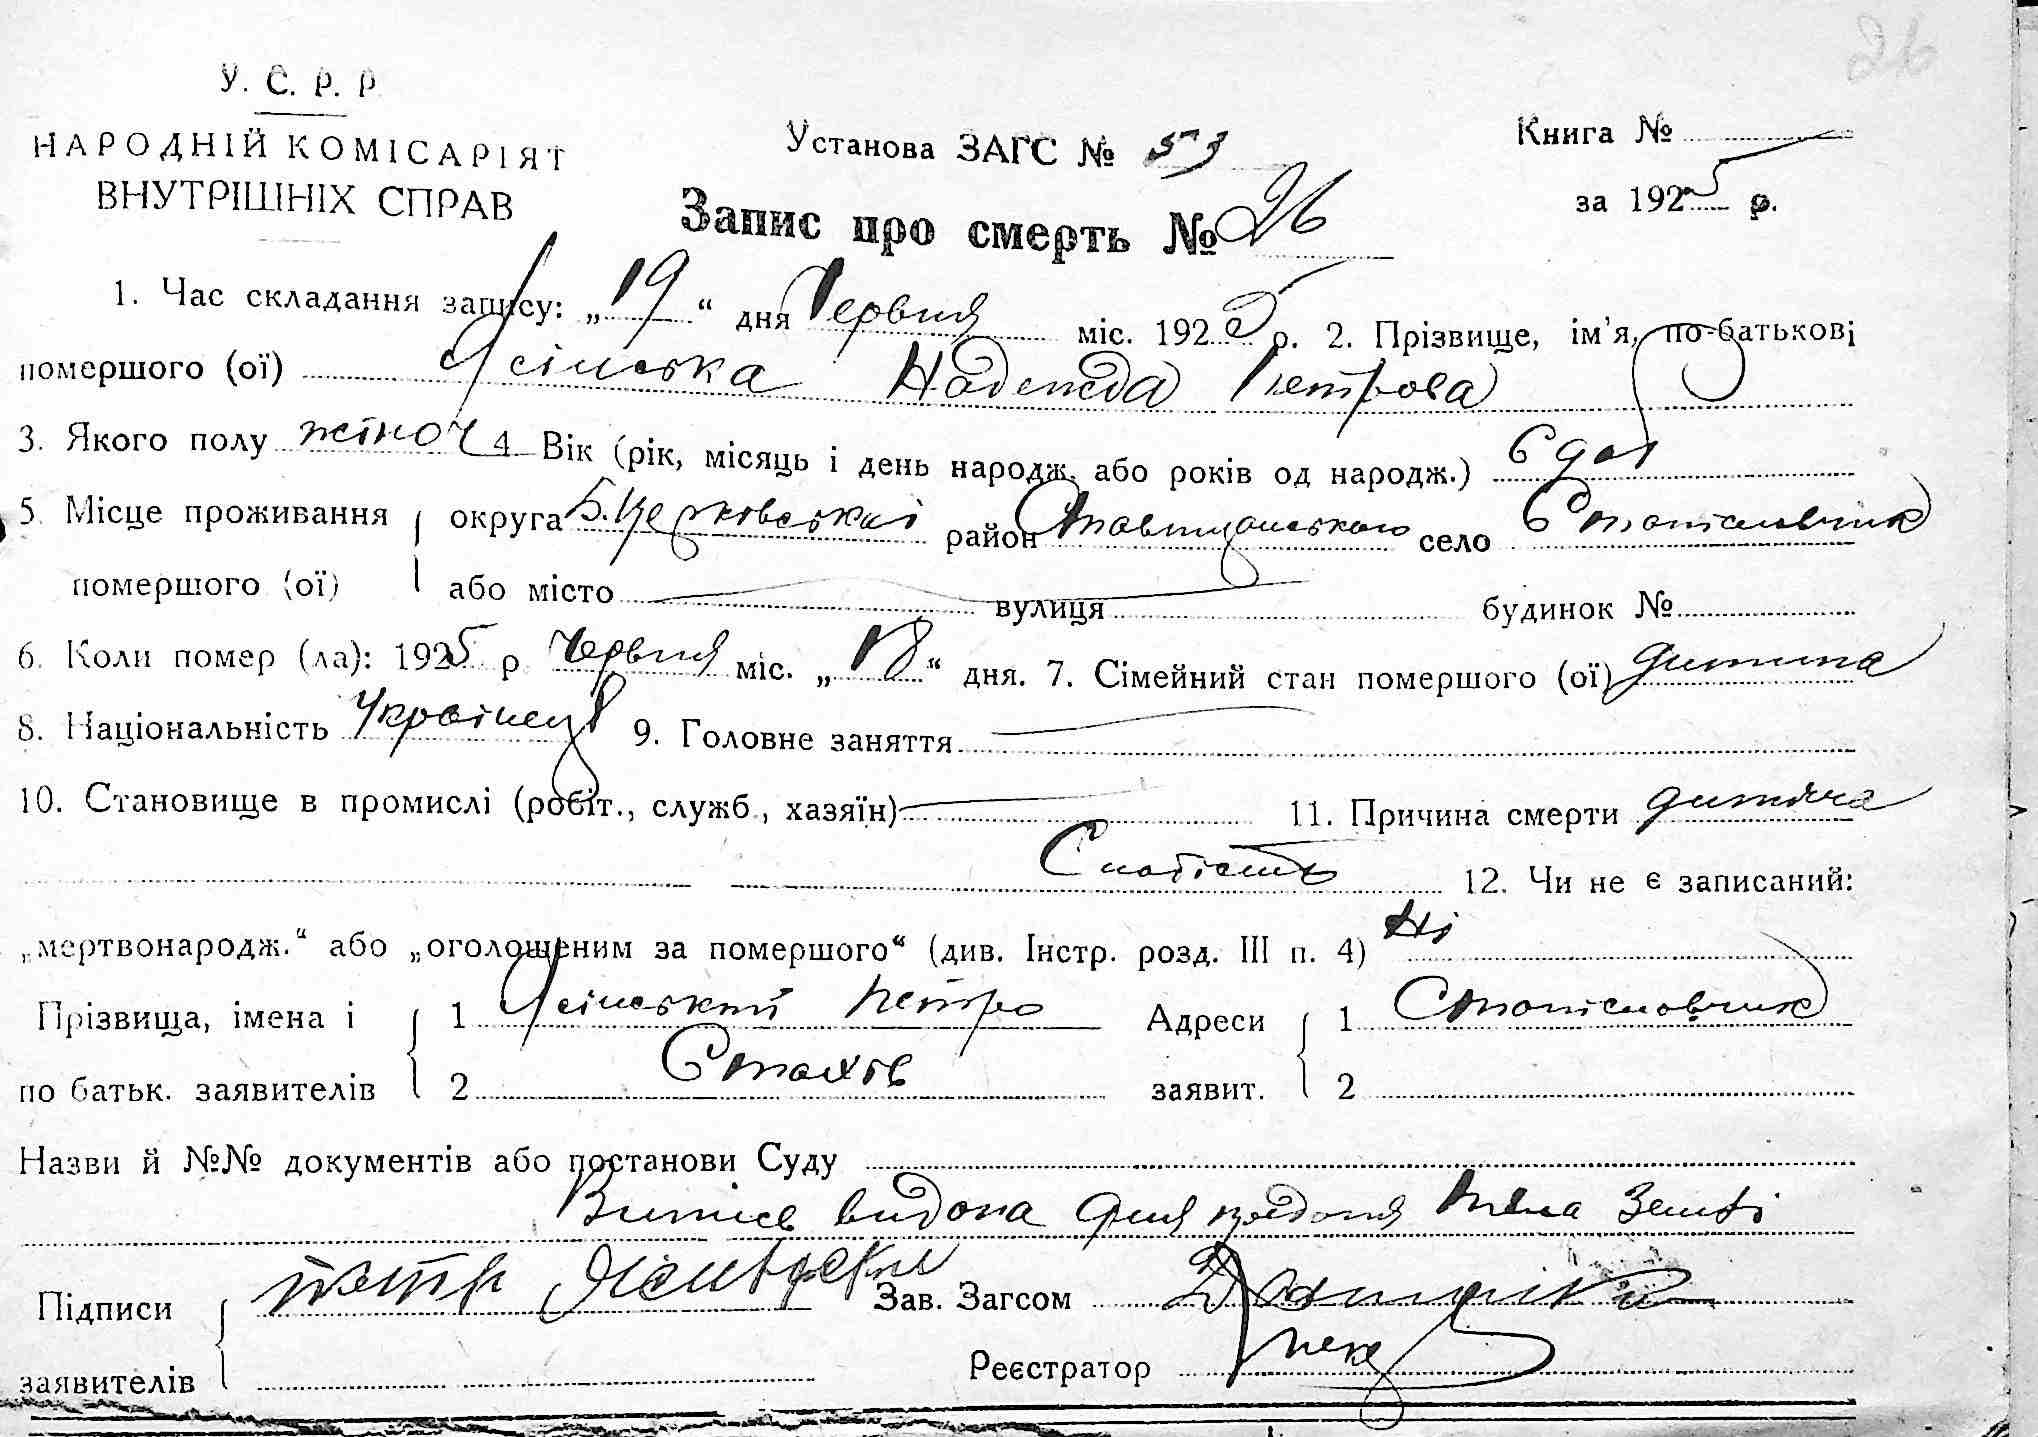 26
У. С. Р. Р
НАРОДНІЙ КОМІСАРІЯТ
ВНУТРІШНІХ СПРАВ
Установа ЗАГС № 53
Книга №
за 1925 р.
Запис про смерть № 26
1. Час складання запису: „19“ дня Червня міс. 1925 р. 2. Прізвище, ім’я, по-батькові
помершого (ої) Ясінська Надежда Петрова
3. Якого полу жіноч 4 Вік (рік, місяць і день народж. або років од народж.) 6 дол
5. Місце проживання округа Б. Церковської район Ставищанського село Станіславчик
помершого (ої) або місто вулиця будинок №
6. Коли помер (ла): 1925 р Червня міс. „18“ дня. 7. Сімейний стан помершого (ої) дитина
8. Національність Українец 9. Головне заняття
10. Становище в промислі (робіт., служб., хазяїн) 11. Причина смерти дитяча
Слабість 12. Чи не є записаний:
„мертвонародж.“ або „оголошеним за помершого“ (див. Інстр. розд. III п. 4) Ні
Прізвища, імена і 1 Ясінський Петро Адреси 1 Станіславчик
по батьк. заявителів 2 Стахів заявит. 2
Назви й №№ документів або постанови Суду
Випись видана для предання тіла Землі
Підписи Петр Ясінускы Зав. Загсом
заявителів Реєстратор